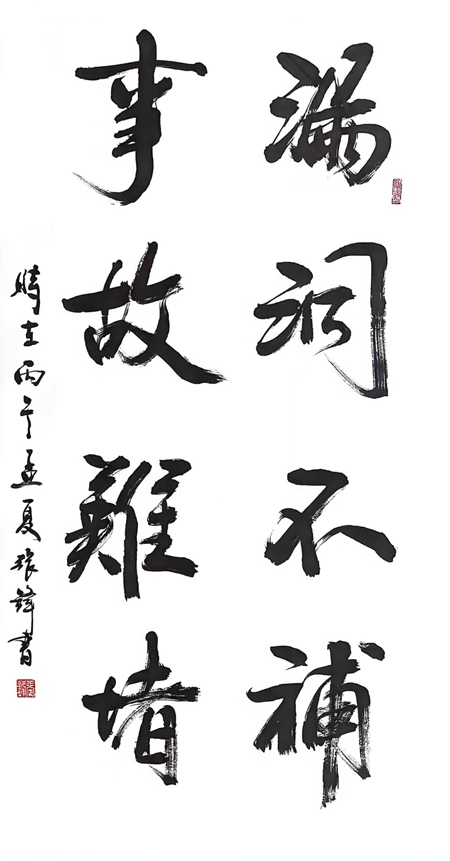 漏洞不補
事故難堵
時在丙孟夏鋒書